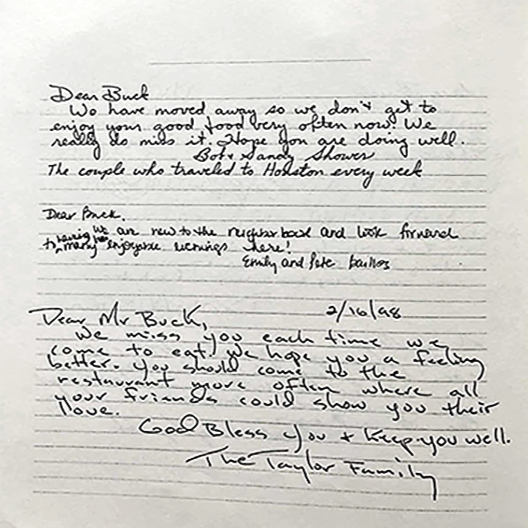 Dear Buck
We have moved away so we don't get to
enjoy your good food very often now! We
really do miss it. Hope you are doing well.
Bob & Sandy Shower
The couple who traveled to Houston every week
Dear Buck.
We are new to the neighborhood and look forward
to having many enjoyable evenings here!
Emily and Pete
2/16/98
Dear Mr Buck,
We miss you each time we
come to eat, we hope you a feeling
better. You should come to the
restaurant more often where all
your friends could show you their
love.
God Bless You + Keep you well.
The Taylor Family